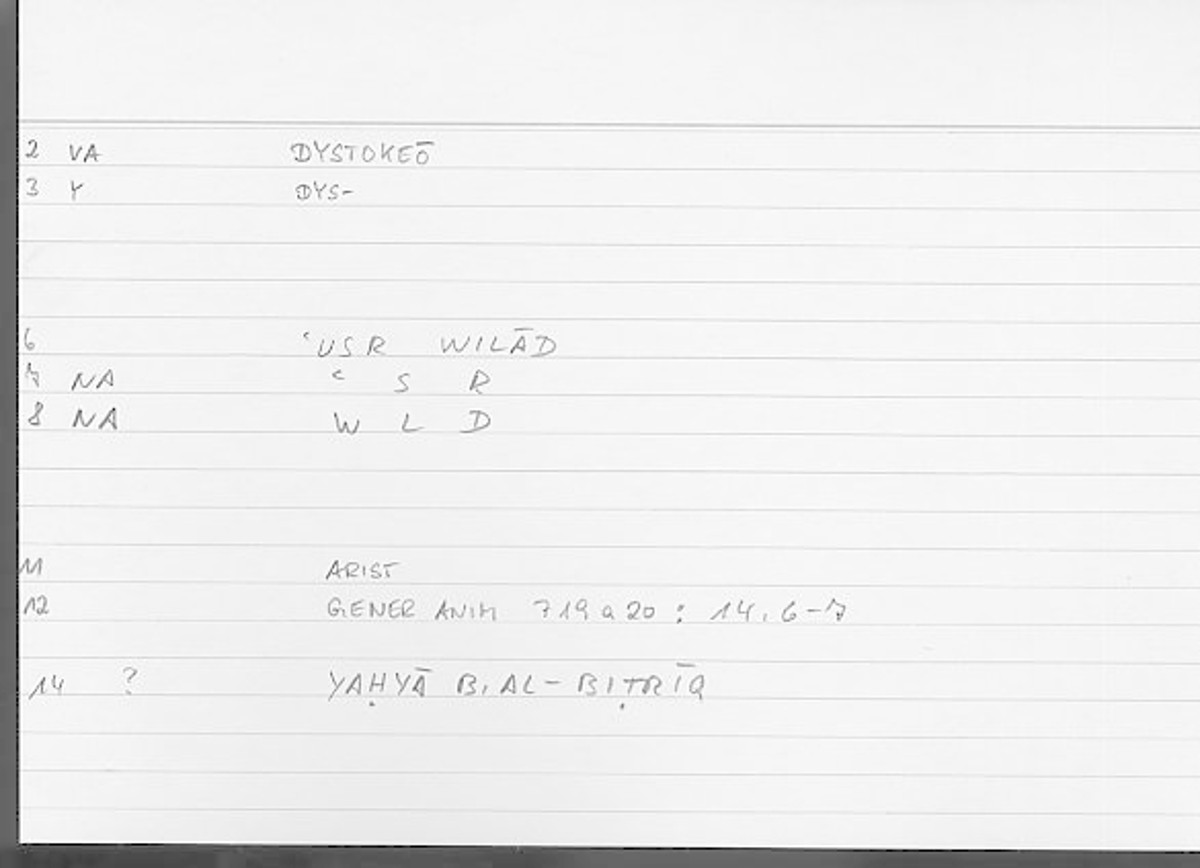 2 VA DYSTOKEŌ
3 Y DYS-
6 ʿUSR WILĀD
7 NA ʿ S R
8 NA W L D
11 ARIST
12 GENER ANIM 719 a 20 : 14, 6-7
14 ? YAḤYĀ B. AL-BIṬRĪQ